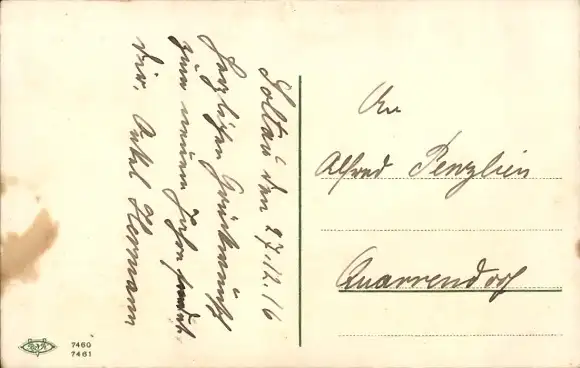 Soltau den 27.12.16
Herzlichen Glückwunsch
zum neuen Jahre sendet
Dir. Onkel Hermann
An
Alfred Penzlien
Quarrendorf
7460
7461